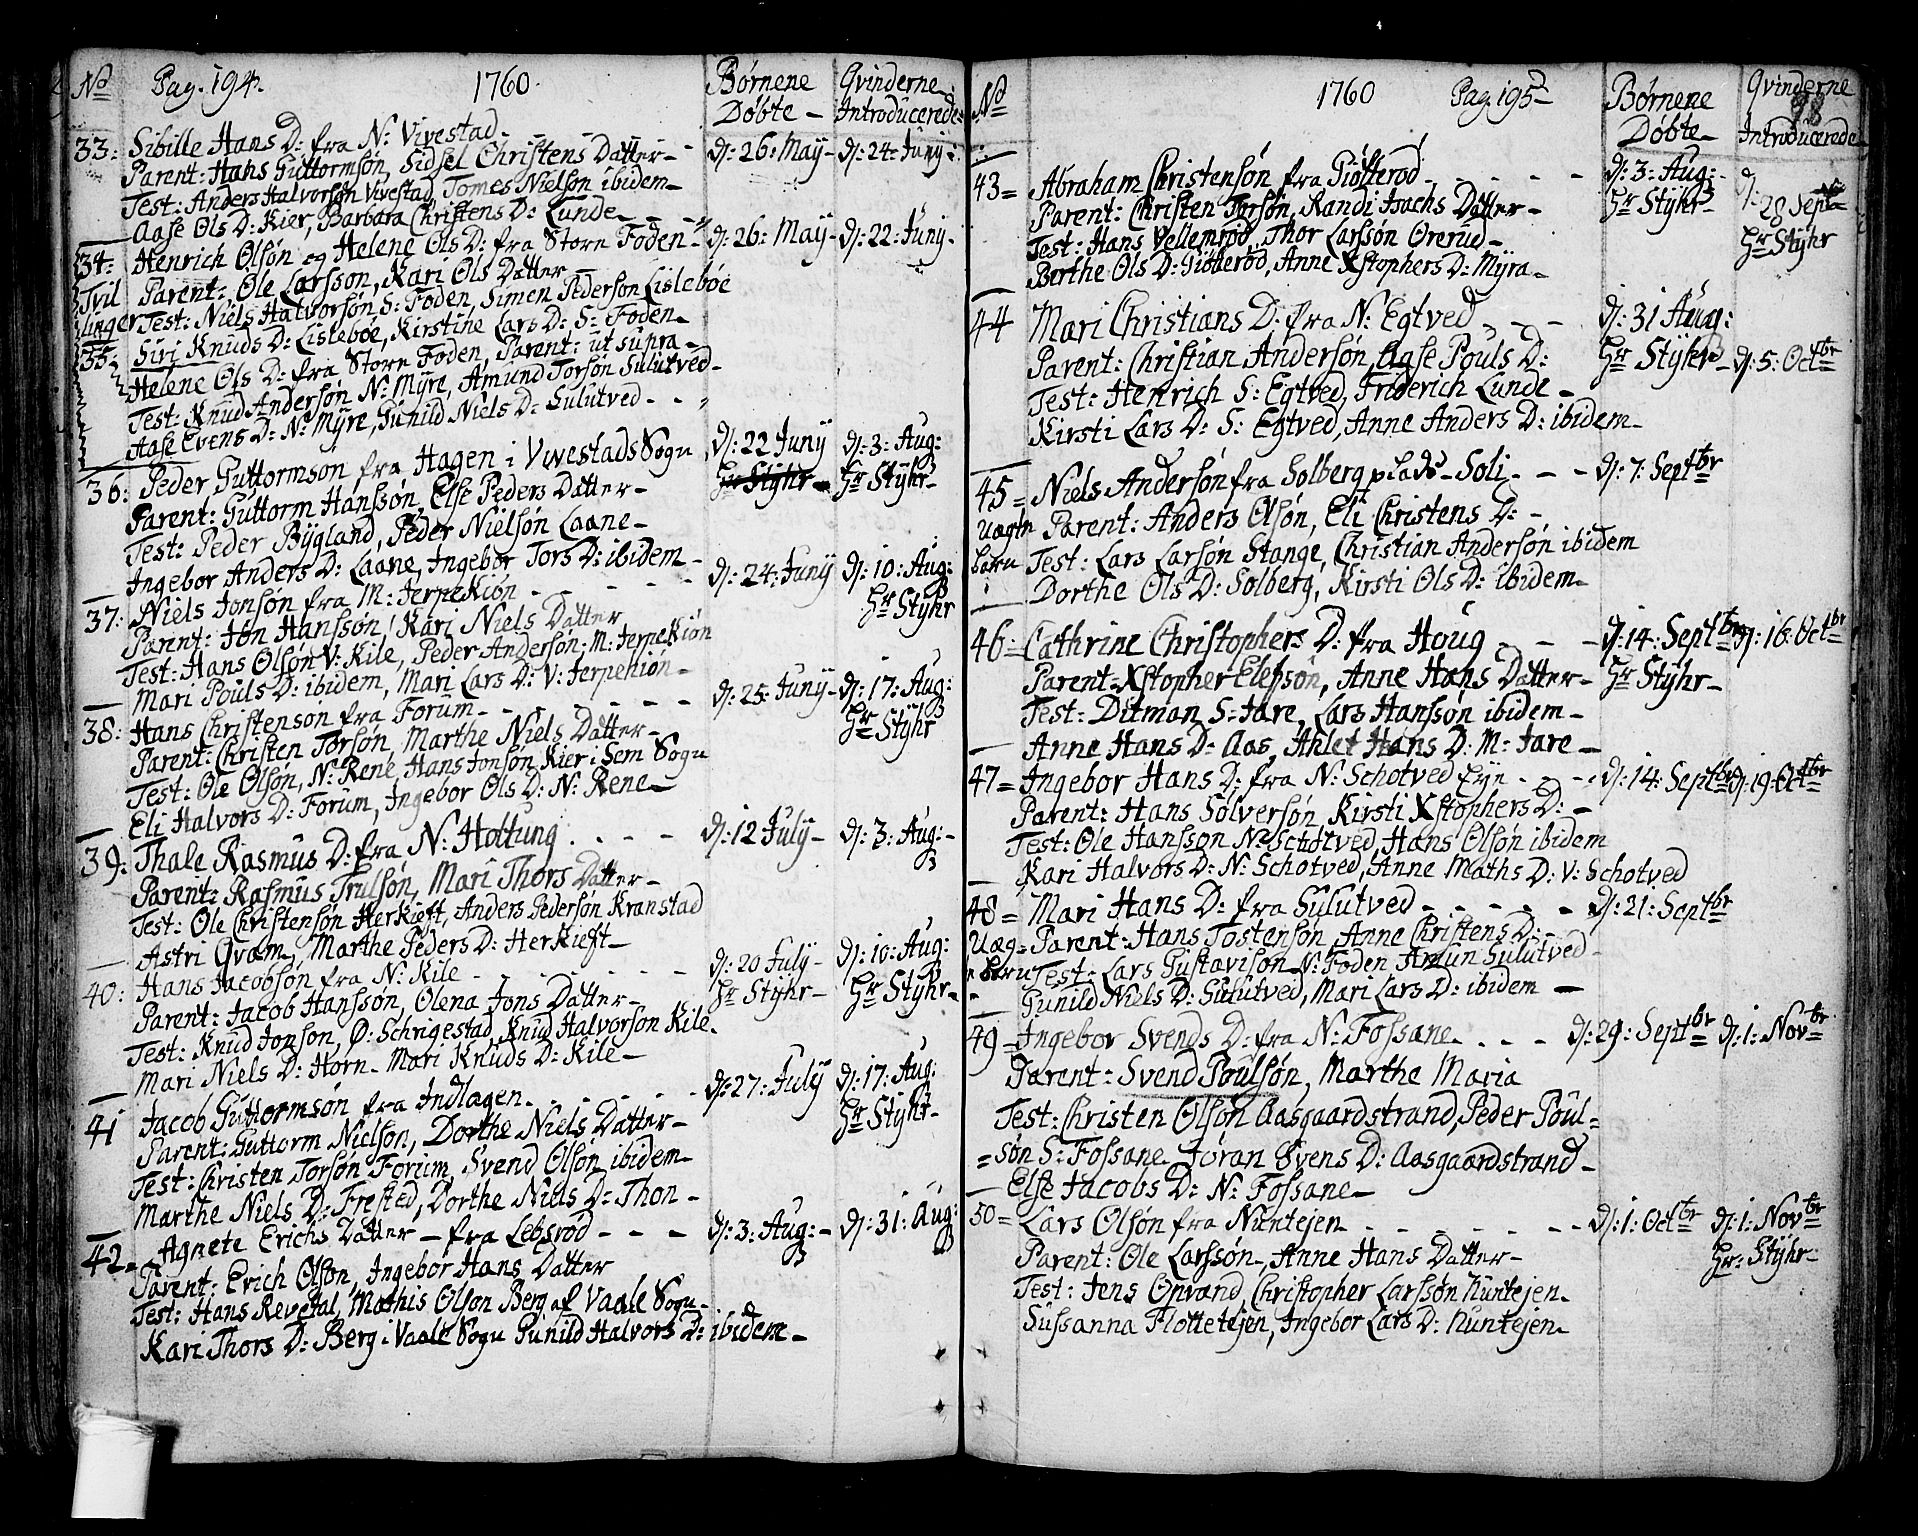 No Pag. 194. 1760 Børnene Døbte - Qvinderne Introducerede:
33: Sibille Hans D: fra N: Vivestad - d: 26: May - d: 24: Juny:
Parent: Hans Guttormsøn, Sidsel Christens Datter -
Test: Anders Halvorsøn Vivestad, Tomes Nielsøn ibidem -
Aase Ols D: Kier, Barbara Christens D: Lunde -
34: Henrich Olsøn og Helene Ols D: fra Store Foden - d: 26: May - d: 22: Juny -
Tvil Parent: Ole Larsson, Kari Ols Datter
linger Test: Niels Halvorsøn S: Foden, Simen Pedersøn Lislebøe
Siri Knuds D: Lislebøe, Kirstine Lars D: S: Foden -
35: Helene Ols D: fra Store Foden, Parent: ut supra -
Test: Knud Andersøn N: Myre, Amund Torsøn Sulutved -
Aase Evens D: N: Myre, Gunild Niels D: Sulutved - -
36: Peder Guttormsøn fra Hagen i Vivestads Sogn d: 22 Juny d: 3: Aug:
Parent: Guttorm Hanssøn, Else Peders Datter - Hr Styhr - Hr Styhr -
Test: Peder Bÿgland, Peder Nielsøn Laane -
Ingebor Anders D: Laane, Ingebor Tors D: ibidem -
37: Niels Jonsøn fra M: Jerpekiøn - - - d: 24: Juny d: 10: Aug:
Parent: Jon Hansson, Kari Niels Datter Hr Styhr
Test: Hans Olsøn V: Kile, Peder Andersøn M: Jerpekiøn
Mari Pouls D: ibidem, Mari Lars D: V: Jerpehiøn -
38: Hans Christensøn fra Forum - - - d: 25: Juny - d: 17: Aug:
Parent: Christen Torsøn, Marthe Niels Datter - Hr Styhr
Test: Ole Olsøn, N: Rene, Hans Jonsøn Kier i Sem Sogn
Eli Halvors D: Forum, Ingebor Ols D: N: Rene -
39: Thale Rasmus D: fra N: Holtung - - - d: 12 July - d: 3: Aug: -
Parent: Rasmus Trulsøn, Mari Thors Datter -
Test: Ole Christensøn Herkieft, Anders Pedersøn Kranstad
Astri Qvam, Marthe Peders D: Herkieft -
40: Hans Jacobsøn fra N: Kile - - - d: 20 July - d: 10: Aug:
Parent: Jacob Hanssøn, Olena Jons Datter - Hr Styhr - Hr Styhr -
Test: Knud Jonsøn, Ø: Schrigestad, Knud Halvorsøn Kile.
Mari Niels D: Horn - Mari Knuds D: Kile -
41 Jacob Guttormsøn fra Indlagen - - - d: 27: July d: 17: Aug:
Parent: Guttorm Nielsøn, Dorthe Niels Datter - Hr Styhr -
Test: Christen Torsøn Forum, Svend Olsøn ibidem -
Marthe Niels D: Frested, Dorthe Niels D: Thon -
42 - Agnete Erichs Datter - fra Lebsrød - - - d: 3: Aug: - d: 31: Aug:
Parent: Erich Olsøn, Ingebor Hans Datter
Test: Hans Revetal, Mathis Olsøn Berg af Vaale Sogn -
Kari Thors D: Berg i Vaale Sogn Gunild Halvors D: ibidem -
No 1760 Pag. 195 Børnene Døbte - Qvinderne Introducerede
98
43 = Abraham Christensøn fra Giøsterød - - - d: 3: Aug: - d: 28 Septr
Parent: Christen Torsøn, Randi Isachs Datter - Hr Styhr - Hr Styhr
Test: Hans Vellemrød, Thor Larssøn Orerud -
Berthe Ols D: Giøterød, Anne Xstophers D: Myra -
44 Mari Christians D: fra N: Egtved - - - d: 31 Aug:
Parent: Christian Andersøn, Aase Pouls D: Hr Styhr - d: 5: Octbr
Test: Henrich S: Egtved, Friderich Lunde -
Kirsti Lars D: S: Egtved, Anne Anders D: ibidem -
45 = Niels Andersøn fra Solberg plads - Soli - - - d: 7: Septbr
Uægte Parent: Anders Olsøn, Eli Christens D: -
barn Test: Lars Larsøn Stange, Christian Andersøn ibidem
Dorthe Ols D: Solberg, Kirsti Ols D: ibidem -
46 = Cathrine Christophers D: fra Houg - - - d: 14: Septbr d: 16: Octbr
Parent: Xstopher Elefsøn, Anne Hans Datter - Hr Styhr -
Test: Ditman S: Jare, Lars Hanssøn ibidem -
Anne Hans D: Aas, Ahlet Hans D: M: Jare -
47 = Ingebor Hans D: fra N: Schotved Eyn - - d: 14: Septbr d: 19: Octbr
Parent: Hans Sølversøn, Kirsti Xstophers D: -
Test: Ole Hansson N: Schotved, Hans Olsøn ibidem
Kari Halvors D: N: Schotved, Anne Maths D: V: Schotved
48 = Mari Hans D: fra Sulutved - - - - d: 21: Septbr
Uæg = Parent: Hans Tostensøn, Anne Christens D: -
barn Test: Lars Gustavison N: Foden Amun Sulutved -
Gunild Niels D: Sulutved, Mari Lars D: ibidem -
49 = Ingebor Svends D: fra N: Fossane - - - d: 29: Septbr d: 1: Novbr
Parent: Svend Poulsøn, Marthe Maria
Test: Christen Olsøn Aasgaardstrand, Peder Poul=
=søn S: Fossane Jøran Svens D: Aasgaardstrand -
Else Jacobs D: N: Fossane -
50 = Lars Olsøn fra Nuntejen - - - d: 1: Octbr d: 1: Novbr
Parent: Ole Larssøn, Anne Hans Datter - Hr: Styhr -
Test: Jens Opvand, Christopher Larssøn Nuntejen -
Sussanna Flottetejen, Ingebor Lars D: Nuntejen -